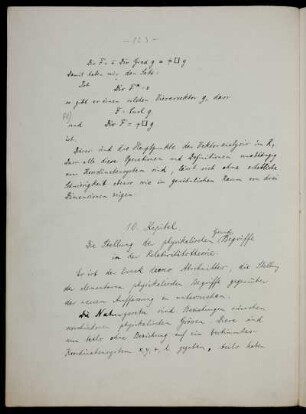 — 123 —
Div F = Div Grad g = + □ g
Damit haben wir den Satz:
Ist
Div F* = 0
so gibt es einen solchen Vierervektor g, dass
F = Curl g
und
Div F = + □ g
ist.
Dies sind die Hauptpunkte der Vektoranalysis im R₄
Dass alle diese Operationen und Definitionen unabhängig
vom Koordinatensystem sind, lässt sich ohne erhebliche
Schwierigkeit ebenso wie im gewöhnlichen Raum von drei
Dimensionen zeigen.
10. Kapitel
Die Stellung der physikalischen Grund Begriffe
in der Relativitätstheorie.
Es ist der Zweck dieses Abschnittes, die Stellung
der elementaren physikalischen Begriffe gegenüber
der neuen Auffassung zu untersuchen.
Die Naturgesetze sind Beziehungen zwischen
verschiedenen physikalischen Grössen. Diese sind
uns teils ohne Beziehung auf ein bestimmtes
Koordinatensystem x, y, z, t gegeben, teils haben